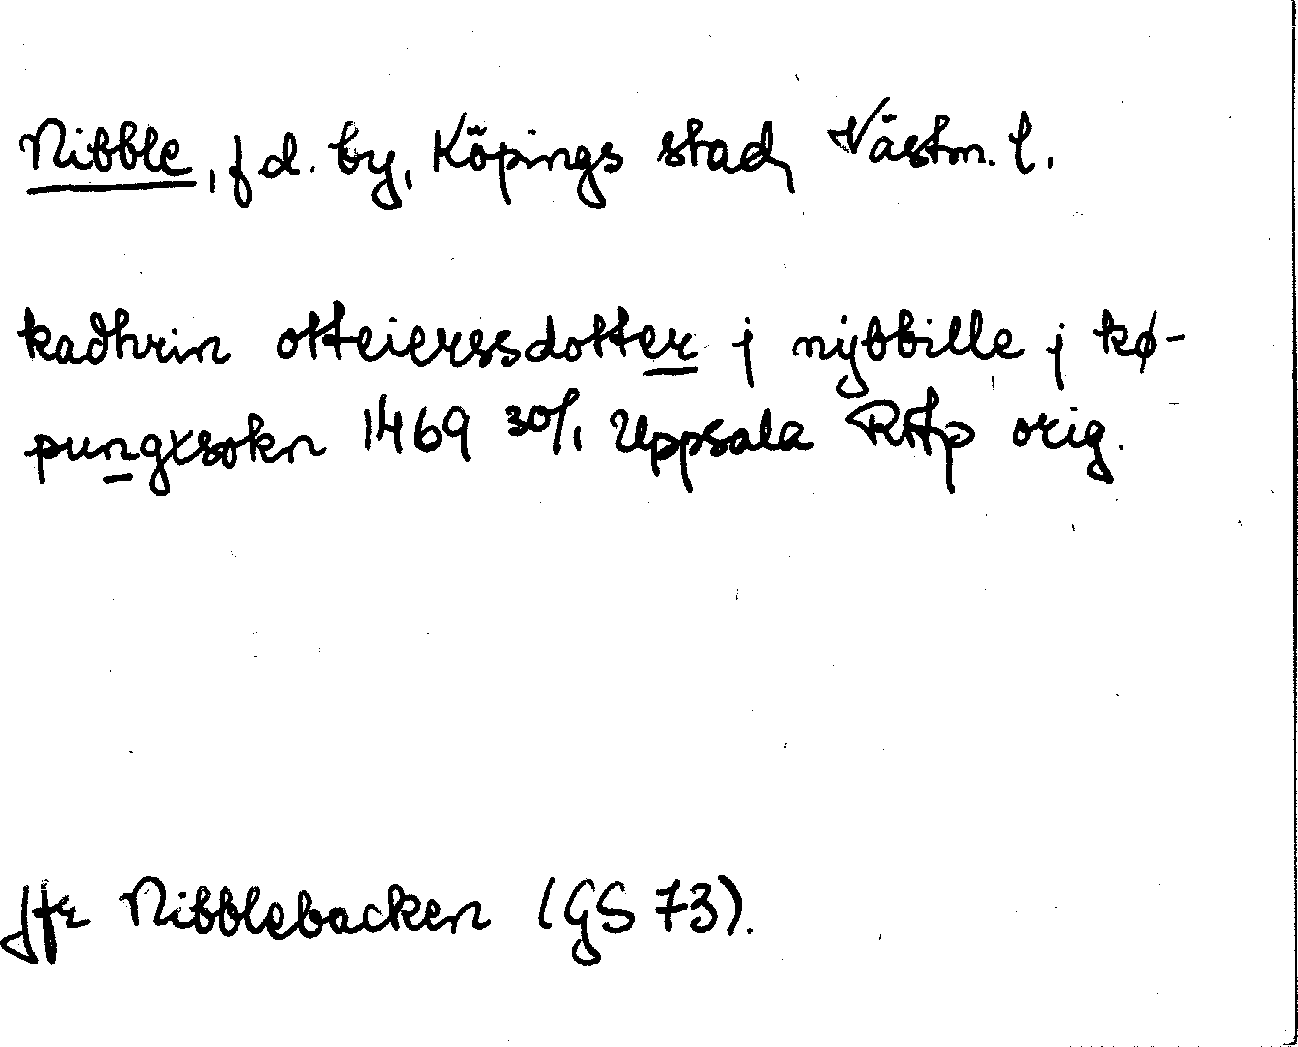 Nibble, f d. by, Köpings stad, Västm. l.
kadhrin otteierssdotter j nybbille j kø-
pungxsokn 1469 30/1 Uppsala RAp orig.
Jfr Nibblebacken (GS 73).